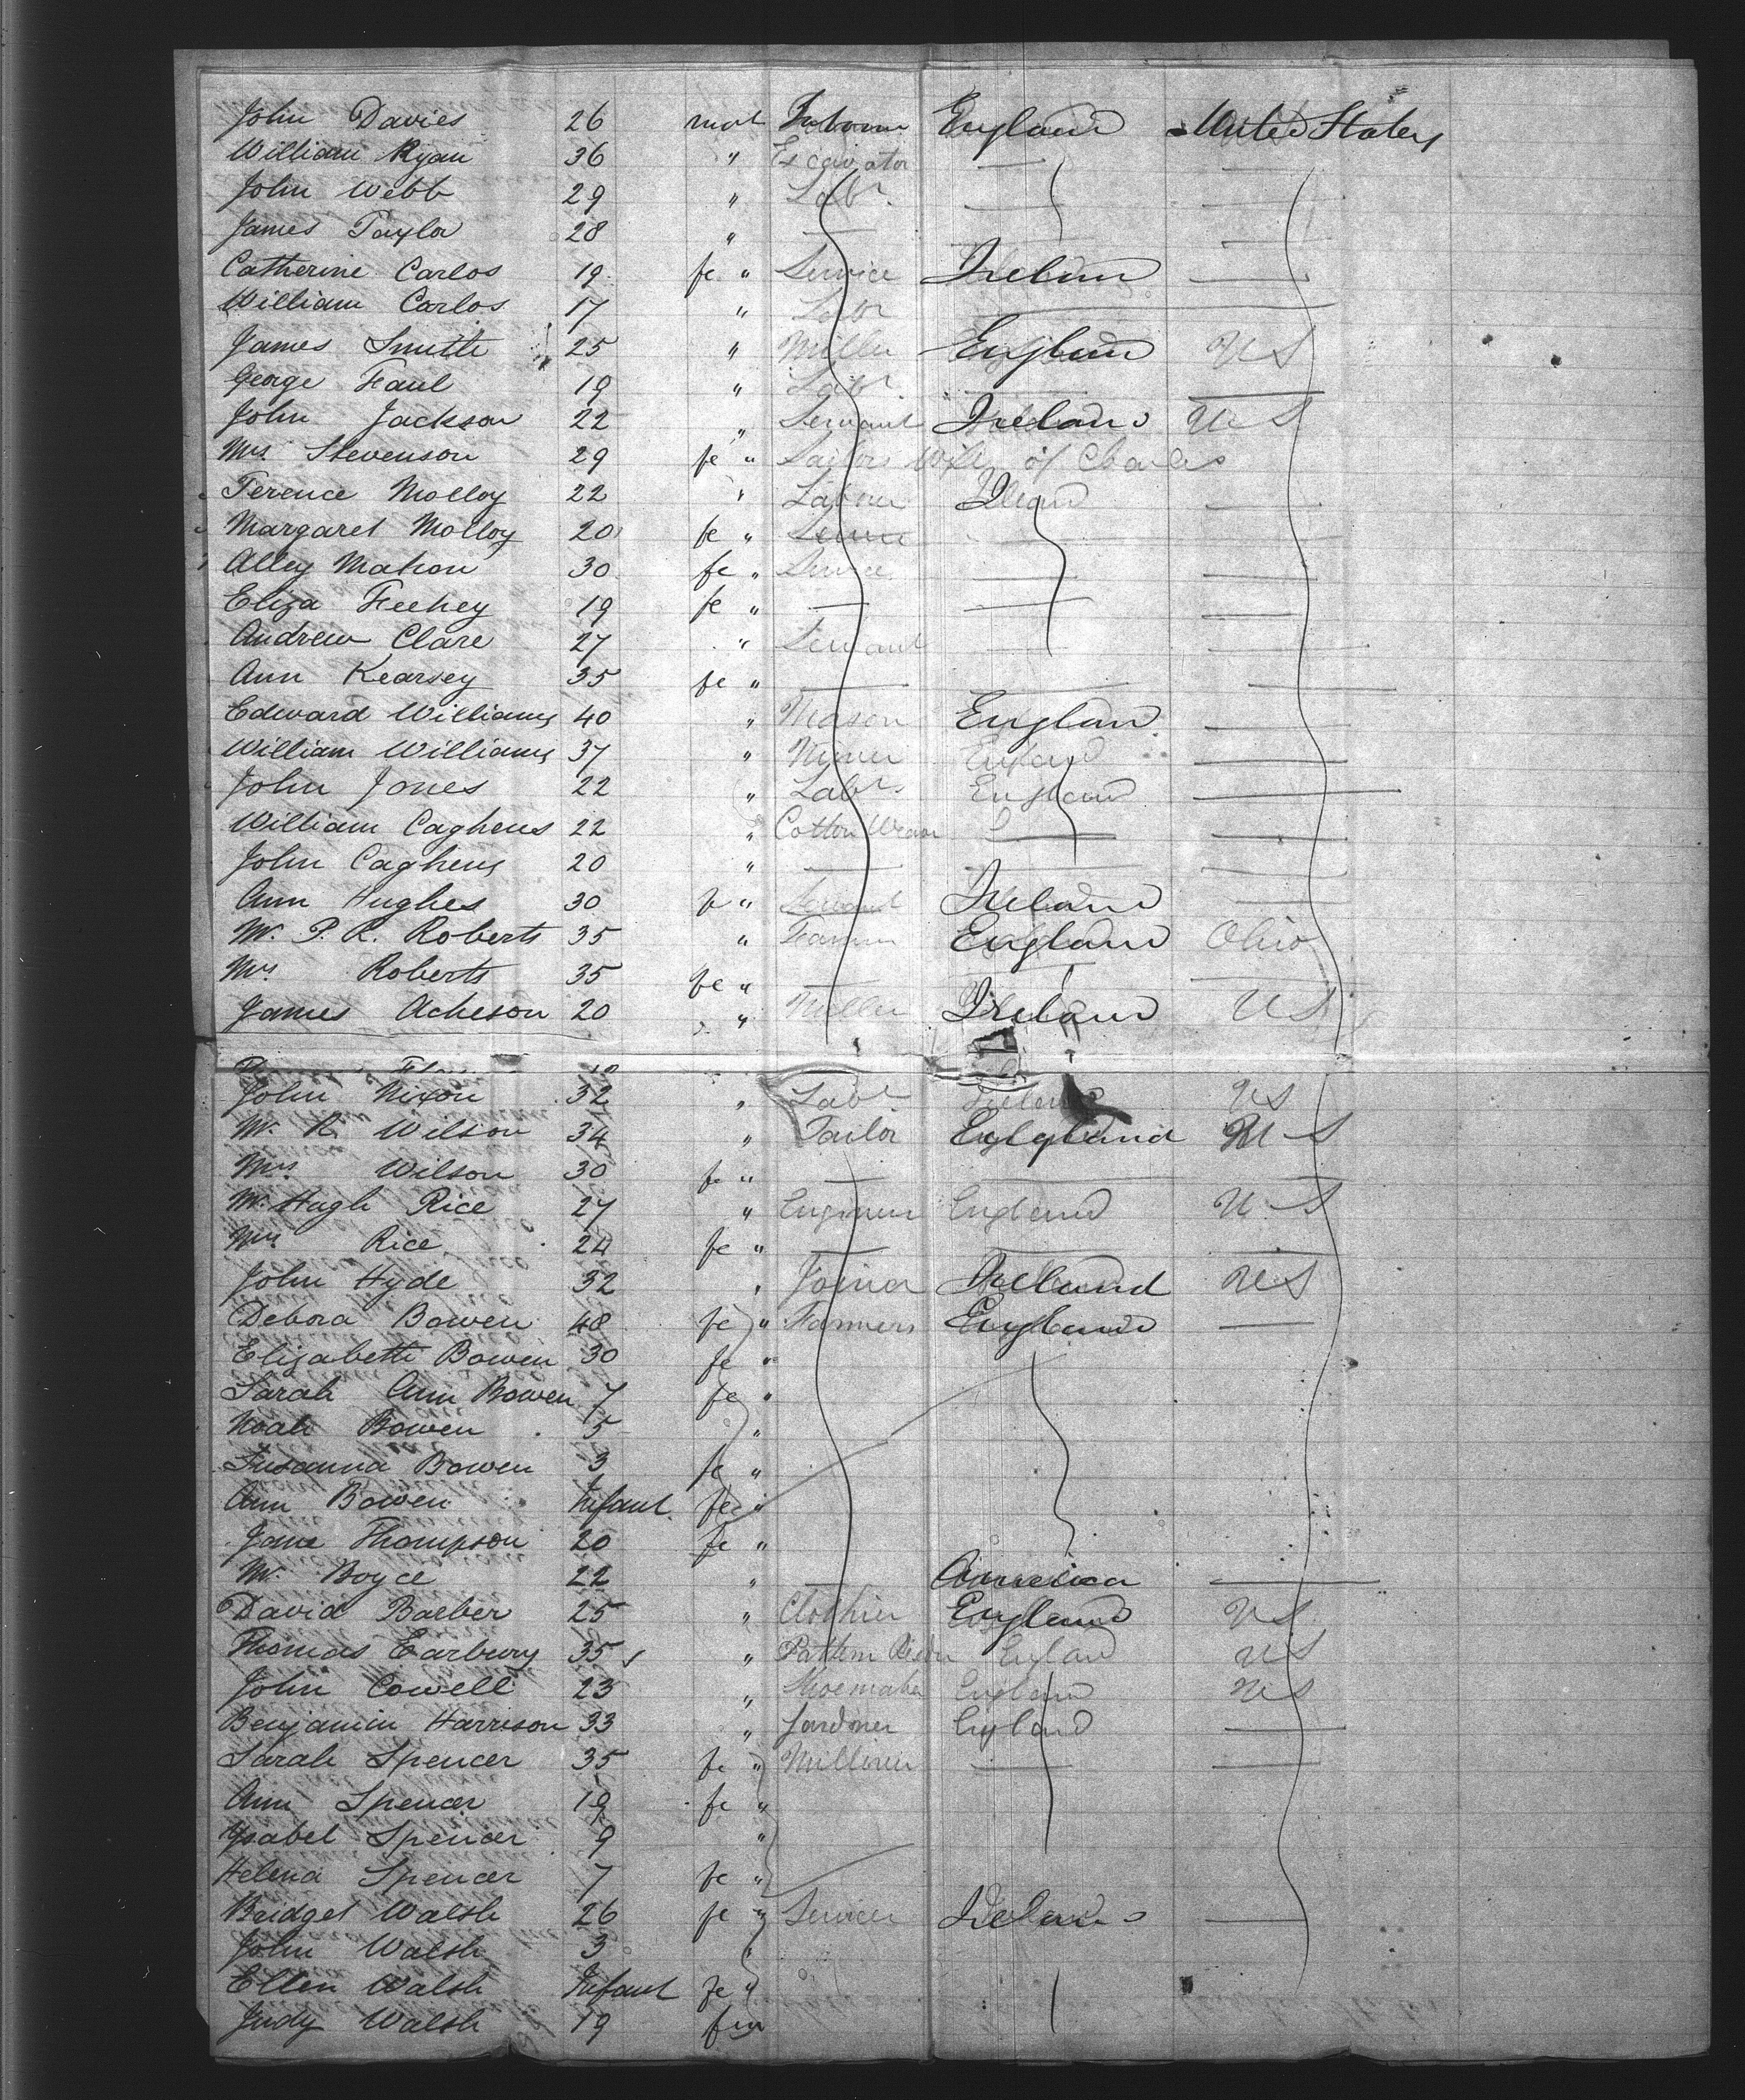 John Davies 26 mal Labourer England United States
William Ryan 36 " Excavator — —
John Webb 29 " Labr. — —
James Taylor 28 " — —
Catherine Carlos 19 fe " Service Ireland —
William Carlos 17 " Labr —
James Smith 25 " Miller England US
George Faul 19 " Labr — —
John Jackson 22 " Servant Ireland US
Mrs Stevenson 29 fe " Sailors Wife of Charles
Terence Molloy 22 " Labourer Ireland —
Margaret Molloy 20 fe " Service — —
Alley Mahon 30 fe " Service — —
Eliza Feehey 19 fe " — — —
Andrew Clare 27 " Servant — —
Ann Kearsey 35 fe " — — —
Edward Williams 40 " Mason England —
William Williams 37 " Miner England —
John Jones 22 " Labr. England —
William Caghens 22 " Cotton Weaver — —
John Caghens 20 " — — —
Ann Hughes 30 f " Servant Ireland —
Mr. P. R. Roberts 35 " Farmer England Ohio
Mrs Roberts 35 fe " — — —
James Acheson 20 " Miller Ireland US
John Nixon 32 " Labr Ireland US
Mr. R. Wilson 34 " Tailor England US
Mrs. Wilson 30 fe " — — —
Mr. Hugh Rice 27 " Engineer England US
Mrs. Rice 24 fe " — — —
John Hyde 32 " Joiner Ireland US
Debora Bowen 48 fe " Farmers England —
Elizabeth Bowen 30 fe "
Sarah Ann Bowen 7 fe "
Noah Bowen 5 "
Susanna Bowen 3 fe "
Ann Bowen Infant fe "
Jane Thompson 20 fe "
Mr. Boyce 22 " — America —
David Barber 25 " Clothier England US
Thomas Earbury 35 " Pattern England US
John Cowell 23 " Shoemaker England US
Benjamin Harrison 33 " Gardner England —
Sarah Spencer 35 fe " Milliner — —
Ann Spencer 19 fe "
Ysabel Spencer 9 "
Helena Spencer 7 fe "
Bridget Walsh 26 fe " Service Ireland —
John Walsh 3 "
Ellen Walsh Infant fe "
Judy Walsh 19 fe "